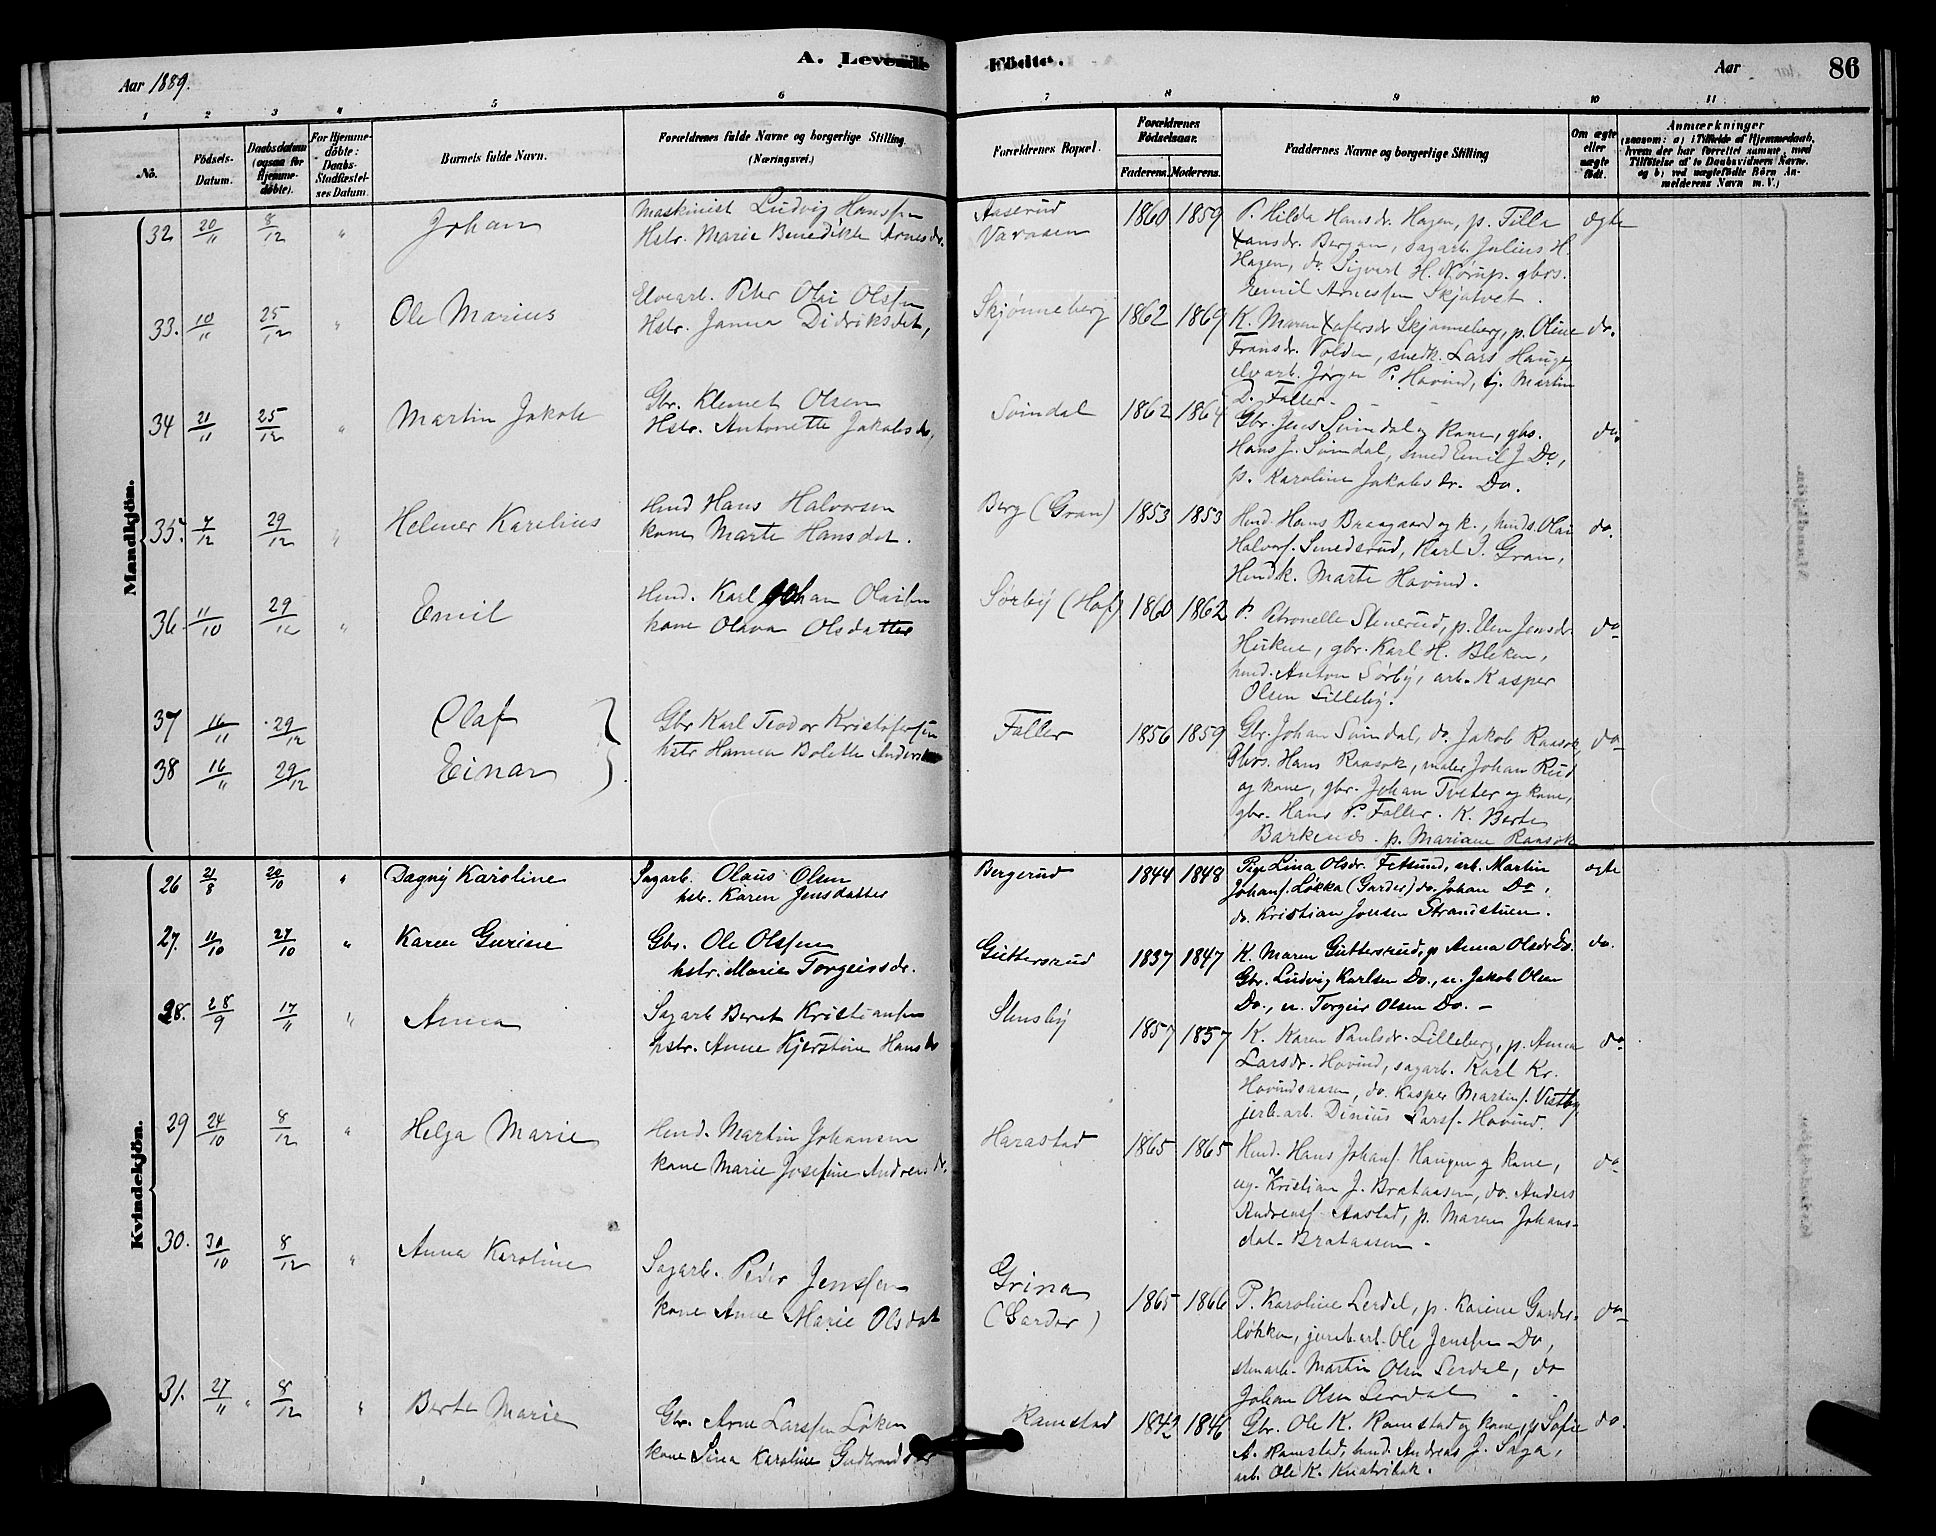 A. Levende Födte.
Aar 1889.
Aar 86
1 2 3 4 5 6 7 8 9 10 11
No.
Födsels-Datum.
Daabsdatum (ogsaa for Hjemme-döbte).
For Hjemme-döbte: Daabs-Stadfæstel-ses Datum.
Barnets fulde Navn.
Forældrenes fulde Navne og borgerlige Stilling (Næringsvei.)
Forældrenes Bopæl.
Forældrenes Födselsaar. Faderens. Moderens.
Faddernes Navne og borgerlige Stilling
Om ægte eller uægte födt.
Anmærkninger (saasom: a) i Tilfælde af Hjemmedaab, hvem der har forrettet samme, med Tilföielse af to Daabsvidners Navne, og b) ved uægtefödte Börn An-melderens Navn m. V.)
Mandkjön.
32 20/11 8/12 " Johan
Maskinist Ludvig Hanssen
Hstr. Marie Benedikte Arnesdr.
Aaserud
Varaaen
1860 1859
P. Hilda Hansdr. Hagen, p. Tilla
Hansdr. Bergan, sagarb. Julius H.
Hagen, do. Sigvart H. Nørup, gbrs.
Emil Arnessen Skjatvet.
ægte
33. 10/11 25/12 " Ole Marius
Elvearb. Peter Olai Olssen
Hstr. Janna Didriksdat,
Skjønneberg
1862 1869
K. Maren Xofersdr Skjønneberg, p. Oline
Fransdr. Volden, snedk. Lars Hauge,
elvarb. Jørgen P. Hovind, tj. Martin
D. Faller.
do.
34 21/11 25/12 " Martin Jakob
Gbr. Klemet Olsen
Hstr. Antonette Jakobsdr,
Svindal
1862 1864
Gbr. Jens Svindal og kone, gbs.
Hans J. Svindal, smed Emil J Do,
p. Karoline Jakobsdr. Do.
do.
35. 7/12 29/12 " Helmer Karelius
Hmd Hans Halvorsen
kone Marte Hansdat.
Berg (Gran)
1853 1853
Hmd. Hans Braagaard og k., hmds. Olai
Halvors. Smedsrud, Karl J. Gran,
Hmdk. Marte Hovind.
do.
36. 11/10 29/12 " Emil
Hmd. Karl Johan Olaisen
kone Olava Olsdatter
Sørby (Hof)
1860 1862
P. Petronelle Stenerud, p. Elen Jensdr.
gbr. Karl H. Bleken,
hmd. Anton Sørby, arb. Kasper
Olsen Lilleby.
do
37 16/11 29/12 Olaf
38 16/11 29/12 Einar
Gbr Karl Teodor Kristofersen
hstr Hanna Bolette Anders
Faller
1856 1859
Gbr. Johan Svindal, do. Jakob Raasok,
Gbrs. Hans Raasok, maler Johan Rud
og kone, gbr. Johan Tveter og kone,
gbr. Hans P. Faller. K. Berte
p. Mariane Raasok
do
Kvindekjön.
26 21/8 20/10 " Dagny Karoline
Sagarb. Olaus Olsen
hstr. Karen Jensdatter
Bergerud
1844 1848
Pige Lina Olsdr. Fetsund, arb. Martin
Johans. Løkka (Garder) do. Johan Do,
do. Kristian Jonsen Strandstuen.
ægte
27. 11/10 27/10 " Karen Gurine
Gbr. Ole Olssen
hstr. Marie Torgeirsdr.
Guttersrud
1837 1847
K. Maren Guttersrud, p Anna Olsdr Do.
Gbr. Ludvig Karlsen Do, u. Jakob Olsen
Do., u. Torgeir Olsen Do. –
do.
28. 28/9 17/11 " Anna
Sagarb Bernt Kristiansen
hstr. Anne Kjerstine Hansdr
Stensby
1857 1857
K. Karen Paulsdr. Lilleberg, p. Anna
Larsdr. Hovind, sagarb. Karl Kr.
Hovindsaasen, do. Kasper Martins. Vestby
jerb. arb. Dinius Larss. Hovind.
do
29 24/10 8/12 " Helga Marie
Hmd. Martin Johansen
kone Marie Josefine Andreasdr.
Harastad
1865 1865
Hmd. Hans Johans. Haugen og kone,
ug. Kristian J. Brataasen, do. Anders
Andreass. Aastad, p. Maren Johans-
dat. Brataasen –
do
30. 30/10 8/12 " Anna Karoline
Sagarb. Peder Jenssen
kone Anne Marie Olsdat
Grina
(Garder)
1865 1866
P. Karoline Lerdal, p. Karine Garder-
løkken, jernb. arb. Ole Jenssen Do,
stenarb. Martin Olsen Lerdal, do
Johan Olsen Lerdal
do
31. 27/11 8/12 " Berte Marie
Gbr. Arne Larssen Løken
kone Lina Karoline Gudbrandsdr
Ramstad
1842 1846
Gbr. Ole K. Ramstad og kone, p Sofie
A. Ramstad, hmd. Andreas J. Saga,
arb. Ole K. Knatvibak.
do.